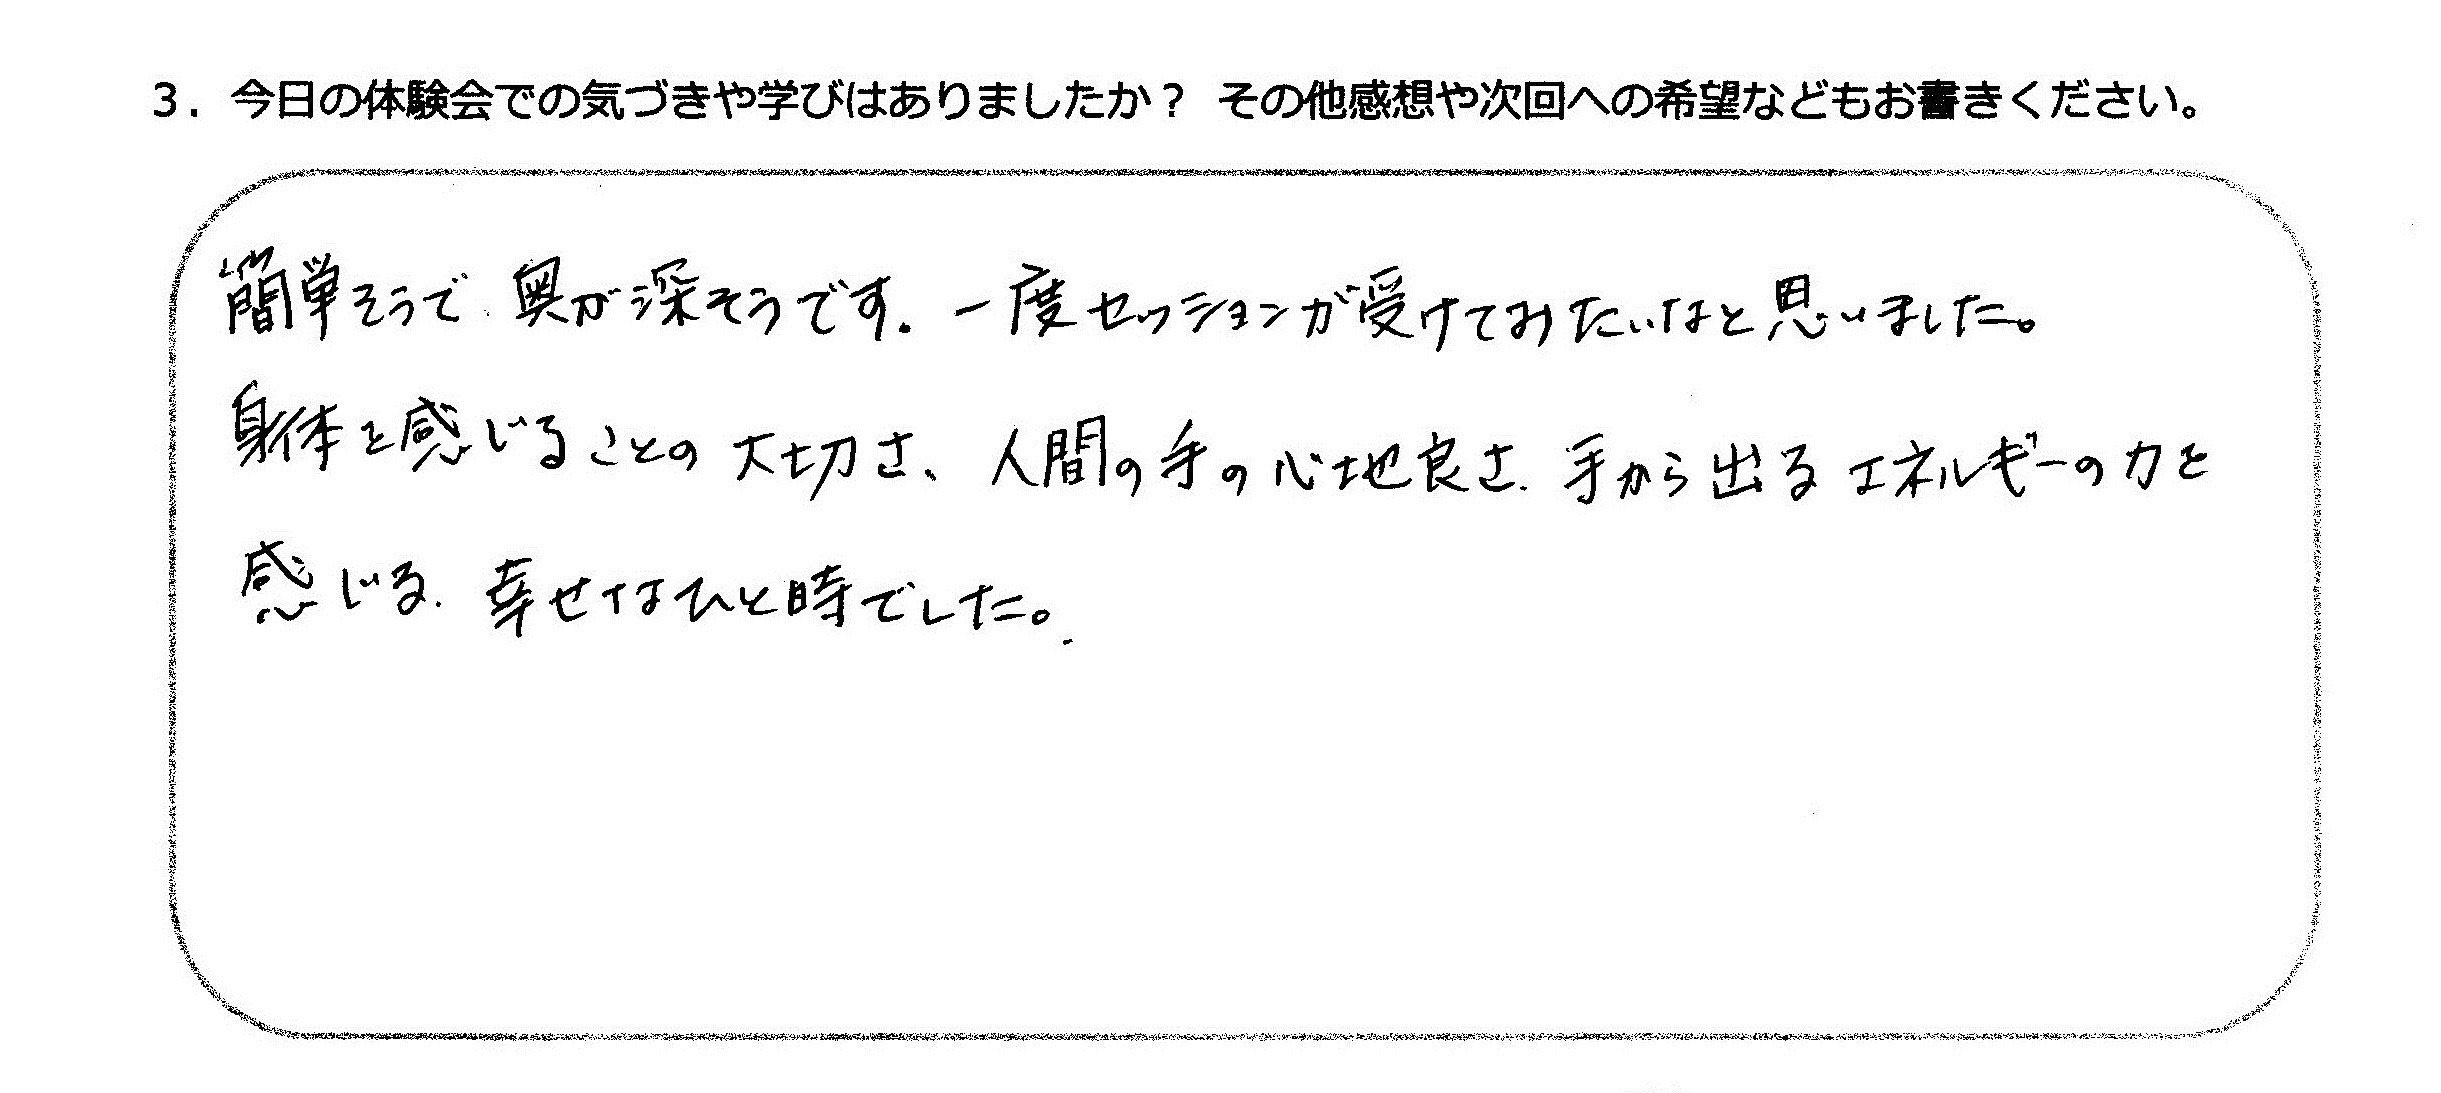 3. 今日の体験会での気づきや学びはありましたか？ その他感想や次回への希望などもお書きください。
簡単そうで、奥が深そうです。一度セッションが受けてみたいなと思いました。
身体を感じることの大切さ、人間の手の心地良さ、手から出るエネルギーの力を
感じる、幸せなひと時でした。